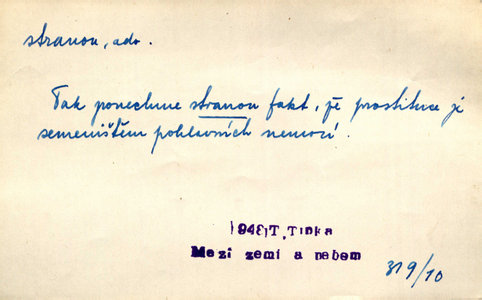 stranou, adv.
Tak ponechme stranou fakt, že prostituce je
semeništěm pohlavních nemocí.
1948, T. Tinka
Mezi zemí a nebem
319/10